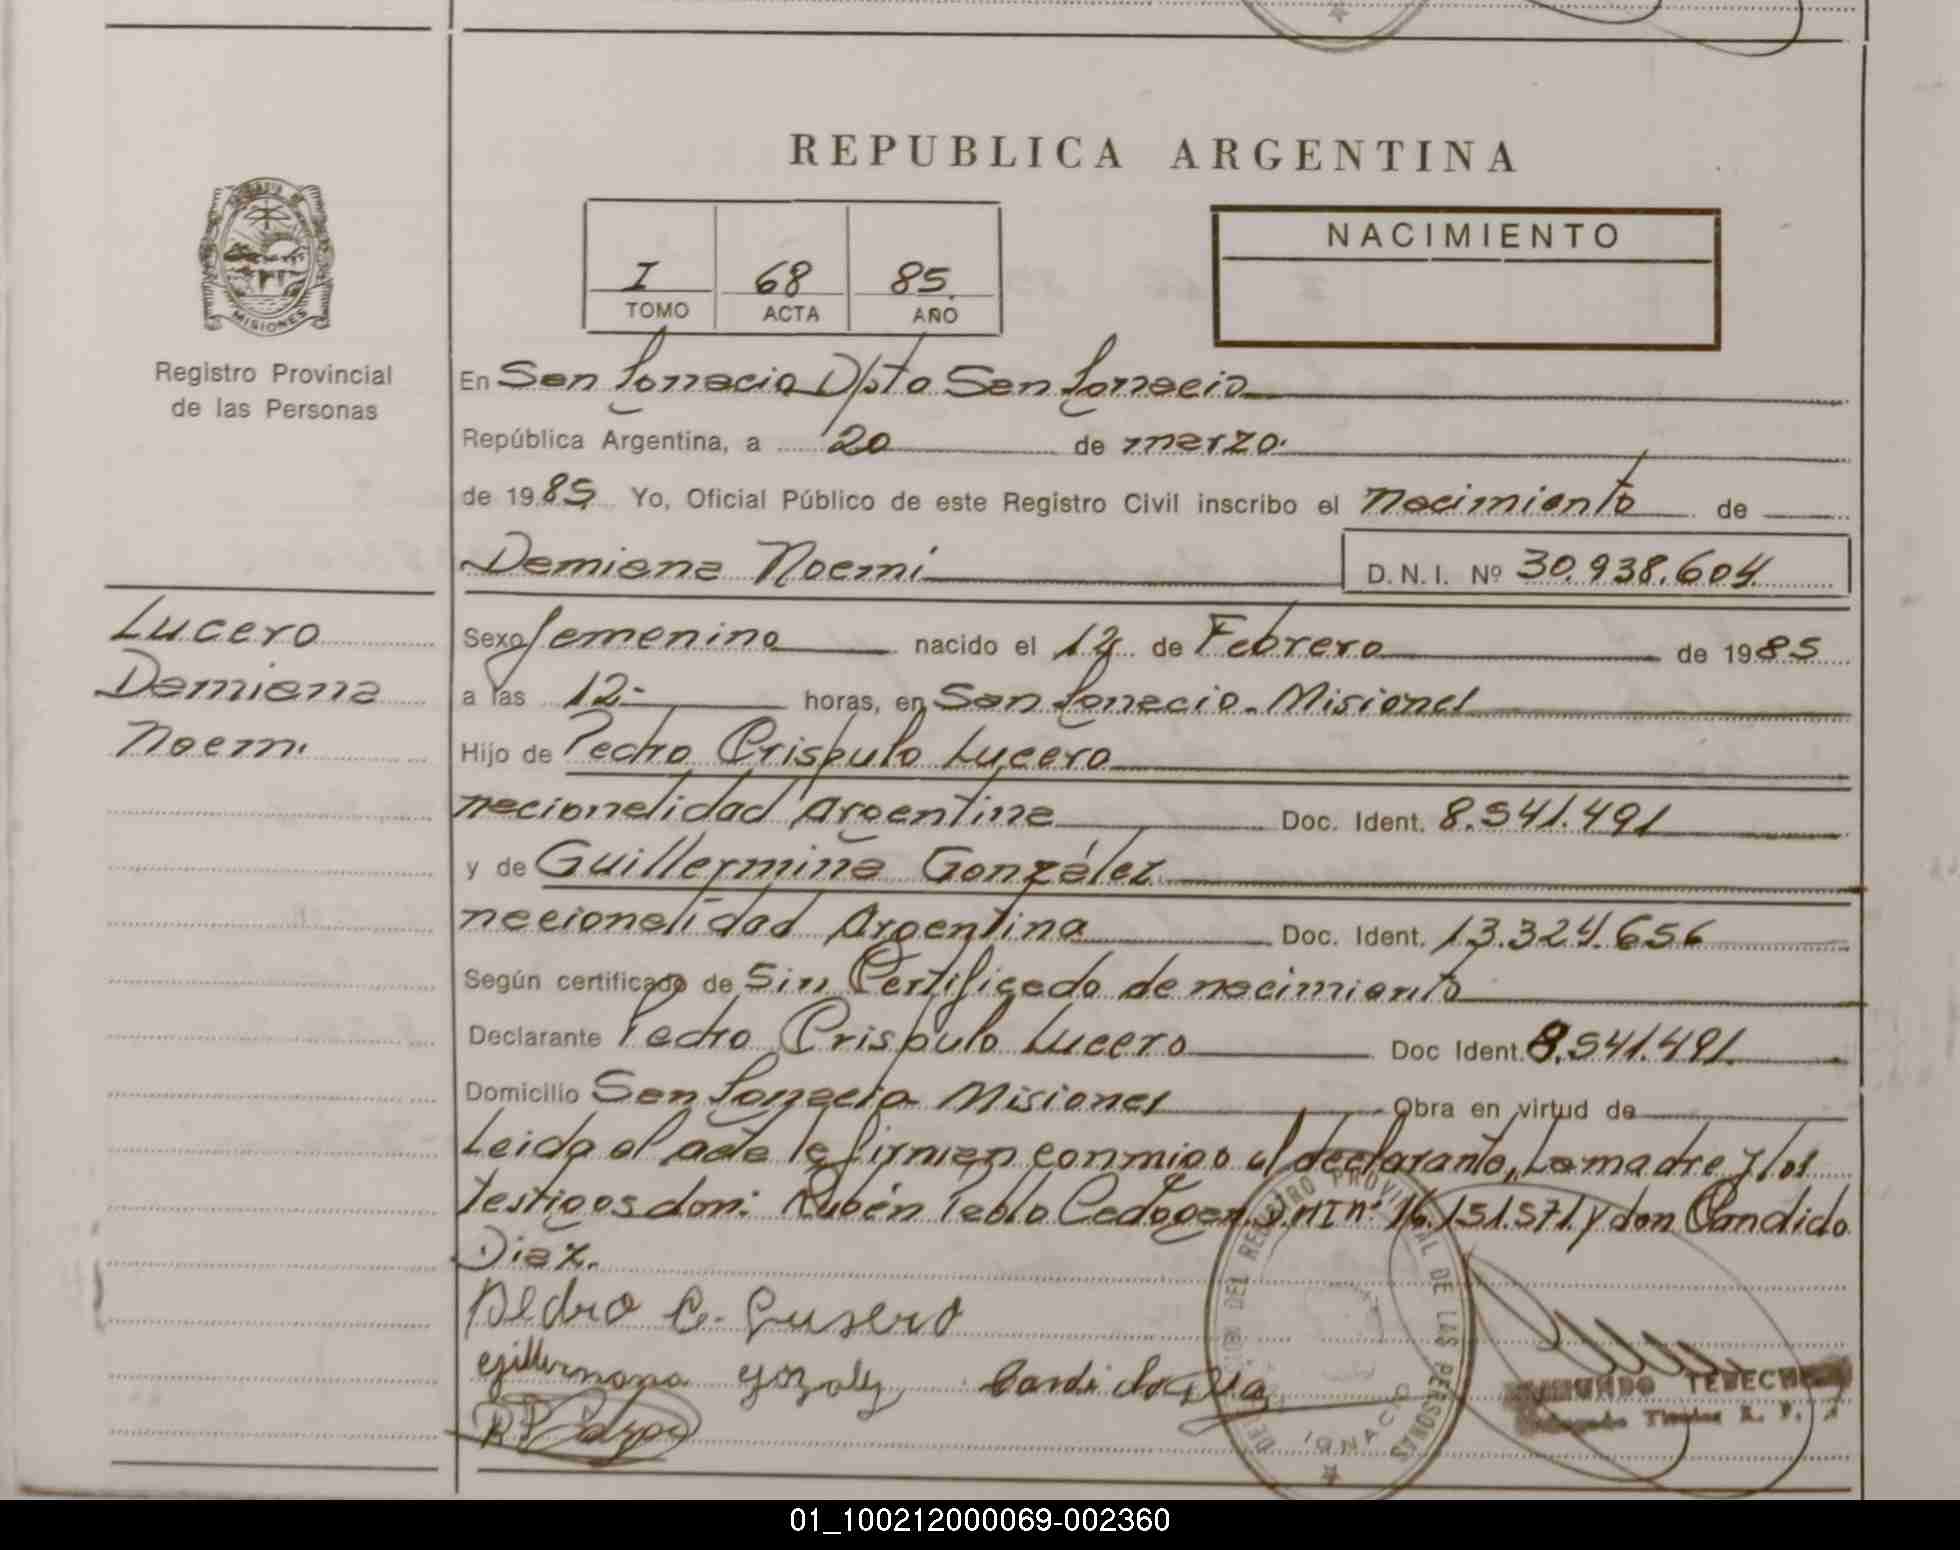 REPUBLICA ARGENTINA
NACIMIENTO
I 68 85.
TOMO ACTA AÑO
MISIONES
Registro Provincial
de las Personas
En San Ignacio Dpto San Ignacio
República Argentina, a 20 de marzo.
de 1985 Yo, Oficial Público de este Registro Civil inscribo el nacimiento de
Damiana Noemi D.N.I. Nº 30.938.604
Lucero
Damiana
Noemi
Sexo femenino nacido el 12 de Febrero de 1985
a las 12- horas, en San Ignacio. Misiones
Hijo de Pedro Crispulo Lucero
nacionalidad Argentina Doc. Ident. 8.541.491
y de Guillermina González
nacionalidad Argentina Doc. Ident. 13.324.656
Según certificado de Sin Certificado de nacimiento
Declarante Pedro Crispulo Lucero Doc Ident. 8.541.491.
Domicilio San Ignacio Misiones Obra en virtud de
Leida el acta la firman conmigo el declarante, La madre y los
testigos don: Rubén Pablo DNI nº 16.151.571 y don Candido
Diaz.
Pedro C. Lusero
DEL REGISTRO PROVINCIAL DE LAS PERSONAS
IGNACIO
TEBECH
Titular R. P.
01_100212000069-002360